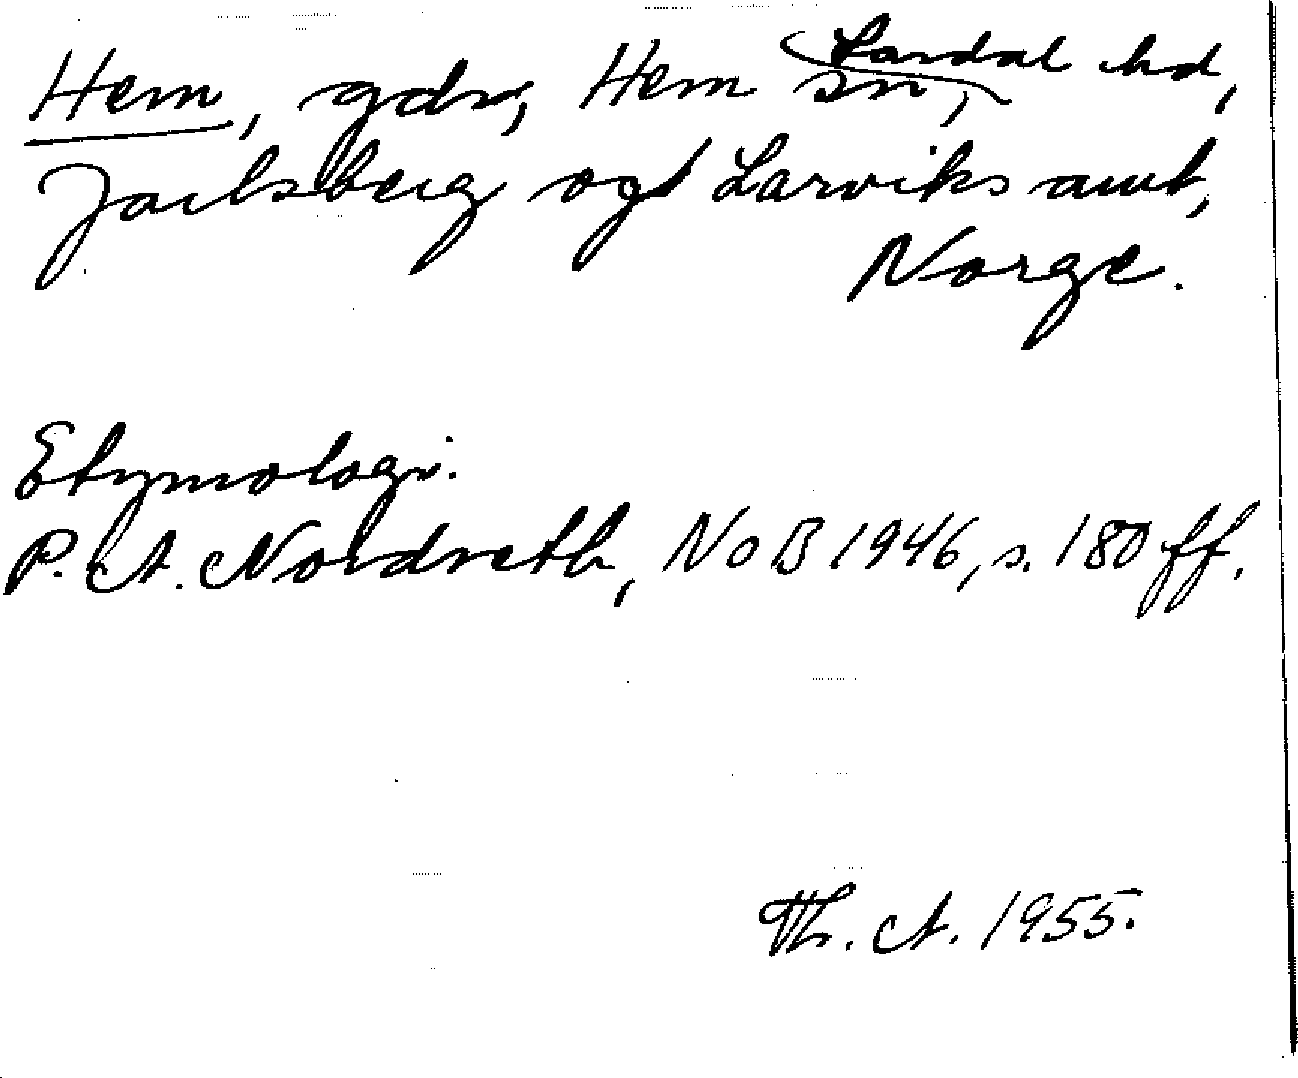 Hem, gdr, Hem sn, Lardal hd,
Jarlsberg og Larviks amt,
Norge.
Etymologi.
P. A. Nordseth, NoB 1946, s. 180 ff.
Th. A. 1955.